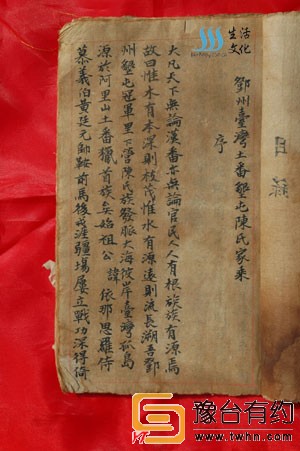 生活
文化
目
鄧州臺灣土番墾屯陳氏家乘
序
大凡天下無論漢番亦無論官民人人有根族族有源焉
故曰惟水有本深則枝茂惟水有源遠則流長溯吾鄧
州墾屯冠軍里下營陳氏族發脈大海彼岸臺灣孤島
源於阿里山土番獵首族矣始祖公諱 依那思羅侍
慕義伯黃廷元帥鞍前馬後疆場屢立戰功深得倚
豫台有约
www.twhn.com